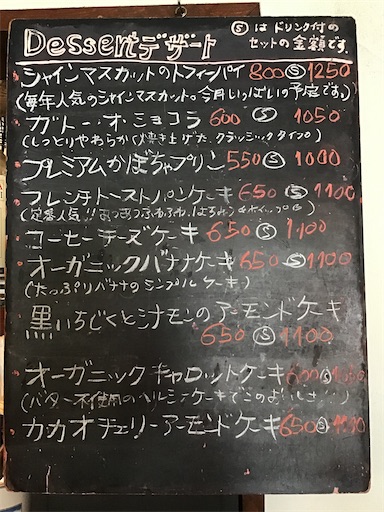 Dessert デザート
Ⓢ は ドリンク付の
セットの金額です。
シャインマスカットのトフィーパイ 800 Ⓢ 1250
(毎年人気のシャインマスカット。今月いっぱいの予定です。)
ガトー・オ・ショコラ 600 Ⓢ 1050
(しっとりやわらかく焼き上げた。クラッシックタイプ)
プレミアムかぼちゃプリン 550 Ⓢ 1000
フレンチトーストパンケーキ 650 Ⓢ 1100
(定番人気!!
コーヒーチーズケーキ 650 Ⓢ 1100
オーガニックバナナケーキ 650 Ⓢ 1100
(たっぷりバナナのシンプルケーキ)
黒いちじくとシナモンのアーモンドケーキ
650 Ⓢ 1100
オーガニックキャロットケーキ 600 Ⓢ
(バター不使用のヘルシーケーキ
カカオチェリーアーモンドケーキ 650 Ⓢ